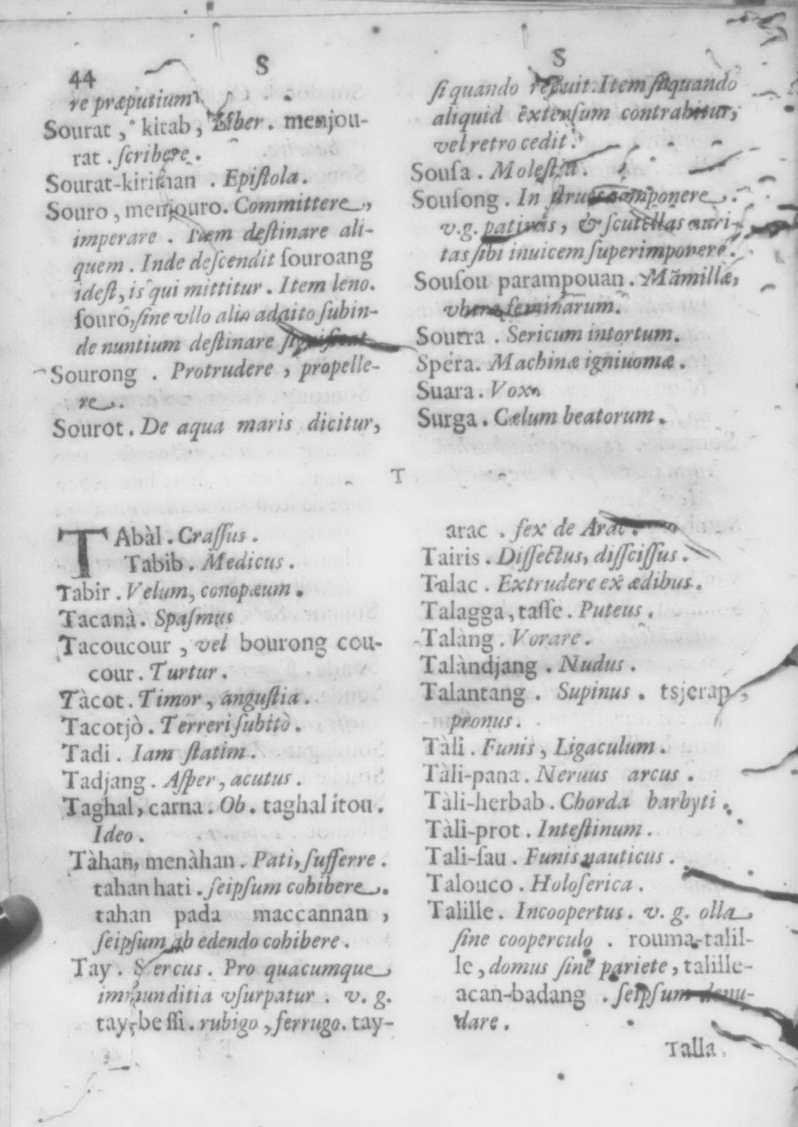 44
S
S
re præputium
Sourat, kitab, Liber. menjou-
rat. ſcribere.
Sourat-kiriman. Epiſtola.
Souro, menjouro. Committere,
imperare. Item deſtinare ali-
quem. Inde deſcendit ſouroang
ideſt, is qui mittitur. Item leno.
ſouro, ſine vllo alio addito ſubin-
de nuntium deſtinare ſignificat
Sourong. Protrudere, propelle-
re.
Sourot. De aqua maris dicitur,
ſi quando refluit. Item ſi quando
aliquid extenſum contrahitur,
vel retro cedit.
Souſa. Moleſtia.
Souſong. In ſtrue componere.
v.g. patinas, & ſcutellas auri-
tas ſibi inuicem ſuperimponere.
Souſou parampouan. Mamillæ,
vbera feminarum.
Soutra. Sericum intortum.
Spéra. Machinæ igniuomæ.
Suara. Vox.
Surga. Cælum beatorum.
T
TAbàl. Craſſus.
Tabib. Medicus.
Tabir. Velum, conopæum.
Tacanà. Spaſmus
Tacoucour, vel bourong cou-
cour. Turtur.
Tàcot. Timor, anguſtia.
Tacotjò. Terreri ſubitò.
Tadi. Iam ſtatim.
Tadjang. Aſper, acutus.
Taghal, carna. Ob. taghal itou.
Ideo.
Tàhan, menàhan. Pati, ſufferre.
tahan hati. ſeipſum cohibere.
tahan pada maccannan,
ſeipſum ab edendo cohibere.
Tay. Stercus. Pro quacumque
immunditia vſurpatur. v. g.
tay-beſſi. rubigo, ferrugo. tay-
arac. fex de Arac.
Tairis. Diſſectus, diſſciſſus.
Talac. Extrudere ex ædibus.
Talagga, taſſe. Puteus.
Talàng. Vorare.
Talàndjang. Nudus.
Talantang. Supinus. tsjerap,
pronus.
Tàli. Funis, Ligaculum.
Tàli-pana. Neruus arcus.
Tàli-herbab. Chorda barbyti.
Tàli-prot. Inteſtinum.
Tali-ſau. Funis nauticus.
Talouco. Holoſerica.
Talille. Incoopertus. v. g. olla
ſine cooperculo. rouma-talil-
le, domus ſine pariete, talille-
acan-badang. ſeipſum denu-
dare.
Talla